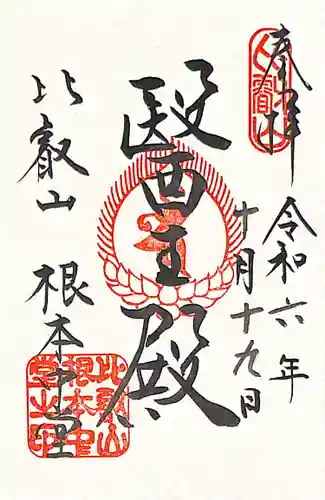 奉拝
令和六年
十月十九日
醫王殿
比叡山
根本中堂
比叡山
根本中
堂之印